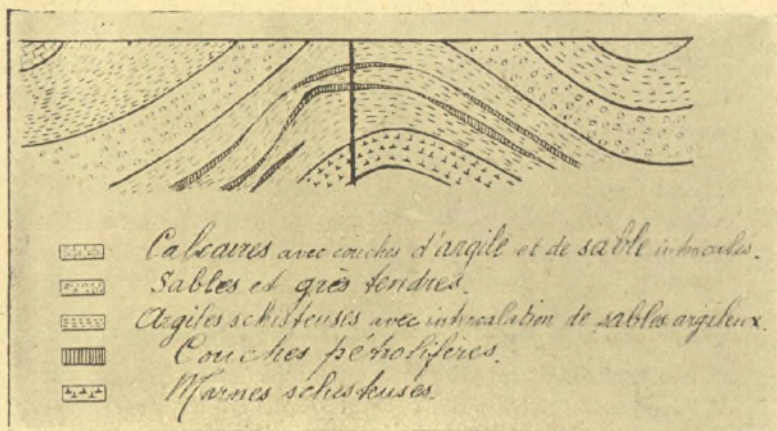 Calcaires avec couches d'argile et de sable intercalés.
Sables et grès tendres.
Argiles schisteuses avec intercalation de sables argileux.
Couches pétrolifères.
Marnes schisteuses.